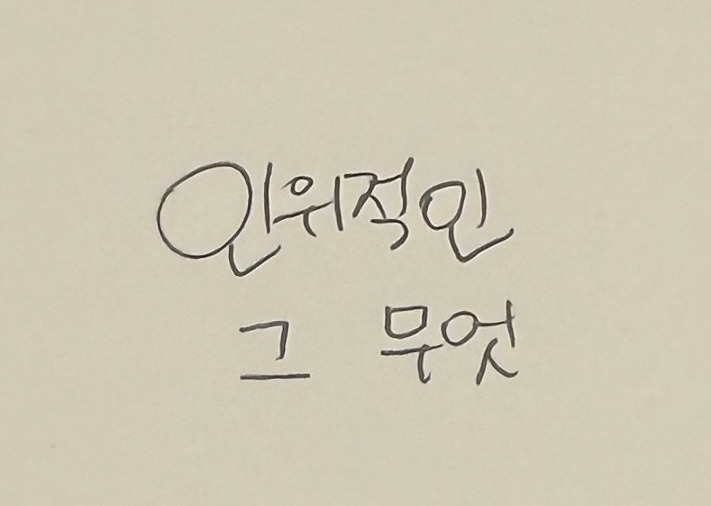 인위적인
그 무엇